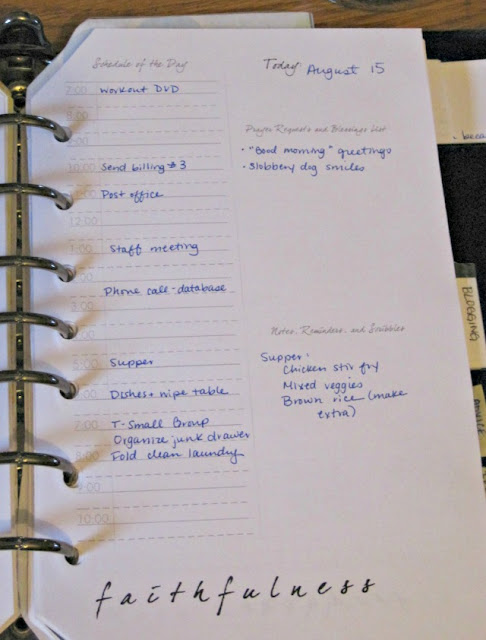 Schedule of the Day
Today August 15
7:00 Workout DVD
8:00
9:00
10:00 Send billing #3
Post office
12:00
1:00 Staff meeting
Phone call - database
3:00
:00
5:00 Supper
6:00 Dishes + wipe table
7:00 T-Small Group
Organize junk drawer
8:00 Fold clean laundry
9:00
10:00
Prayer Requests and Blessings List
• "Good morning" greetings
• Slobbery dog smiles
Notes, Reminders, and Scribbles
Supper:
Chicken stir fry
Mixed veggies
Brown rice (make
extra)
faithfulness
BLOGGING